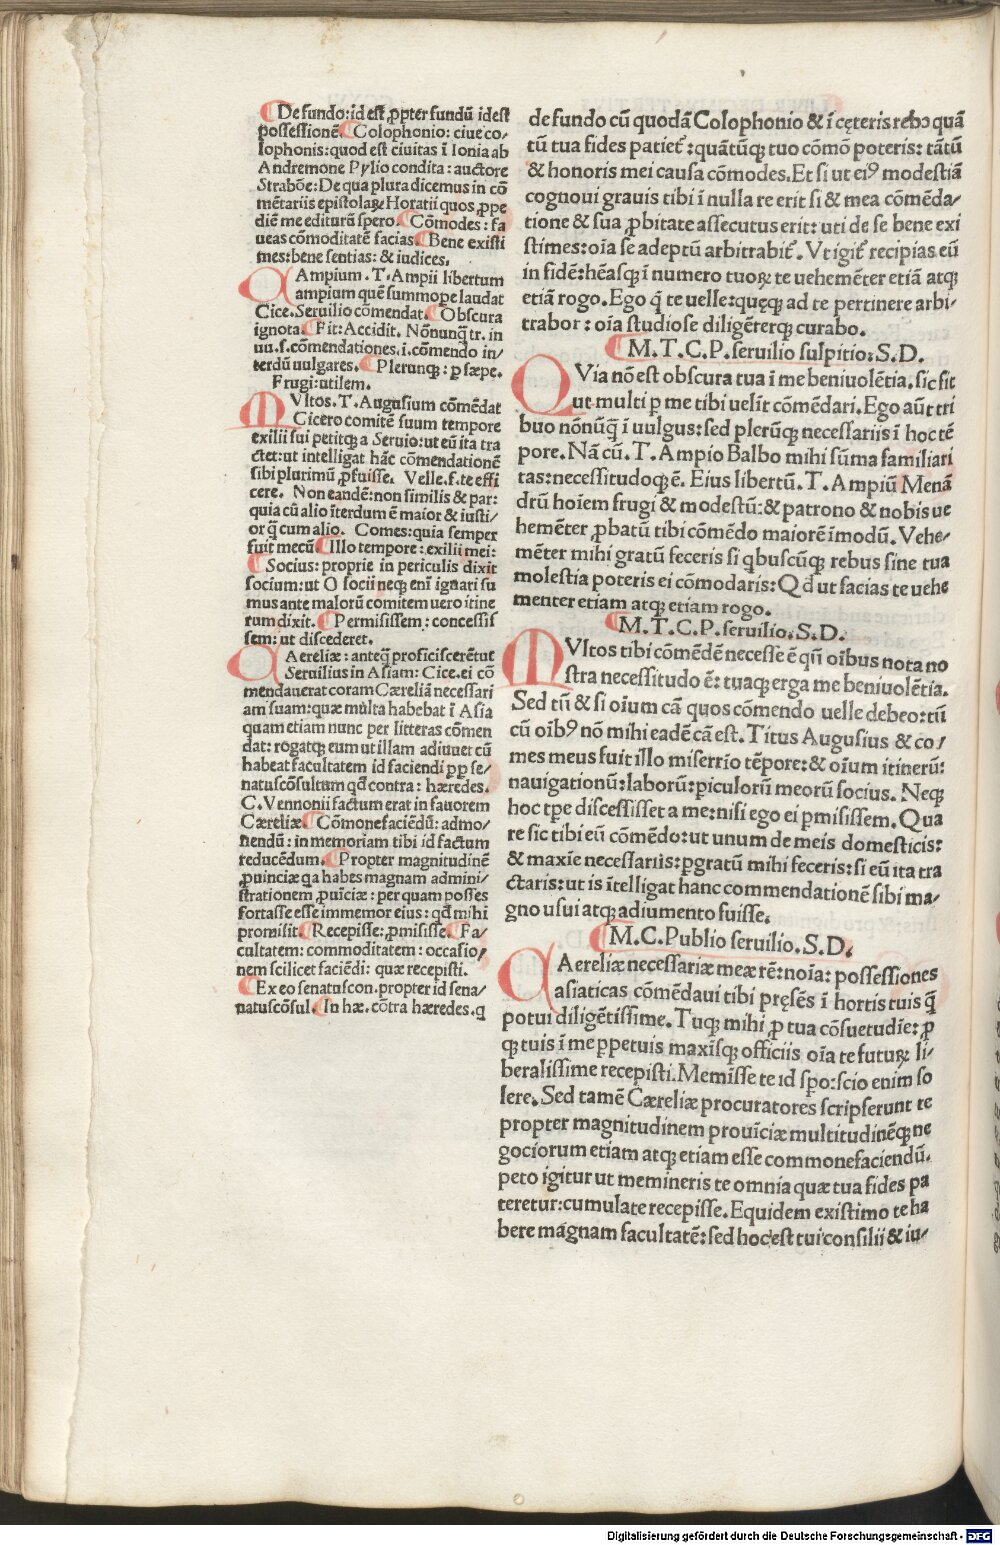 De fundo: id est ꝓpter fundũ id est
possessionẽ. Colophonio: ciue co/
lophonis: quod est ciuitas ĩ Ionia ab
Andremone Pylio condita: auctore
Strabõe: De qua plura dicemus in cõ
mẽtariis epistolaꝝ Horatii quos ꝓpe
diẽ me editurũ spero. Cõmodes: fa
ueas cõmoditatẽ facias. Bene existi
mes: bene sentias: & iudices.
AAmpium. T. Ampii libertum
ampium quẽ summope laudat
Cice. Seruilio cõmendat. Obscura
ignota. Fit: Accidit. Nõnunq̃ tr. in
uu. s. cõmendationes. i. cõmendo in/
terdũ uulgares. Plerunqꝫ: ꝑ sæpe.
Frugi: utilem.
MVltos. T. Augusium cõmẽdat
Cicero comitẽ suum tempore
exilii sui petitqꝫ a Seruio: ut eũ ita tra
ctet: ut intelligat hãc cõmendationẽ
sibi plurimũ ꝓfuisse. Velle. s. te effi
cere. Non eandẽ: non similis & par:
quia cũ alio ĩterdum ẽ maior & iusti/
or q̃ cum alio. Comes: quia semper
fuit mecũ. Illo tempore: exilii mei:
Socius: proprie in periculis dixit
socium: ut O socii neqꝫ enĩ ignari su
mus ante malorũ comitem uero itine
rum dixit. Permisissem: concessis
sem: ut discederet.
CAereliæ: anteq̃ proficisceretur
Seruilius in Asiam: Cice. ei cõ
mendauerat coram Cæreliã necessari
am suam: quæ multa habebat ĩ Asia
quam etiam nunc per litteras cõmen
dat: rogatqꝫ eum ut illam adiuuet cũ
habeat facultatem id faciendi ꝓp se/
natuscõsultum qđ contra: hæredes.
C. Vennonii factum erat in fauorem
Cæreliæ. Cõmonefaciẽdũ: admo/
nendũ: in memoriam tibi id factum
reducẽdum. Propter magnitudinẽ
ꝓuinciæ qa habes magnam admini/
strationem ꝓuĩciæ: per quam posses
fortasse esse immemor eius: qđ mihi
promisit. Recepisse: ꝓmisisse. Fa/
cultatem: commoditatem: occasio/
nem scilicet faciẽdi: quæ recepisti.
Ex eo senatuscon. propter id sena/
natuscõsul. In hæ. cõtra hæredes. q
de fundo cũ quodã Colophonio & ĩ cęteris rebꝰ quã
tũ tua fides patiet̃: quãtũqꝫ tuo cõmõ poteris: tãtũ
& honoris mei causa cõmodes. Et si ut eiꝰ modestiã
cognoui grauis tibi ĩ nulla re erit si & mea cõmẽda/
tione & sua ꝓbitate assecutus erit: uti de se bene exi
stimes: oĩa se adeptũ arbitrabit̃. Vt igit̃ recipias eũ
in fidẽ: hẽasqꝫ ĩ numero tuoꝝ te uehemẽter etiã atqꝫ
etiã rogo. Ego q̃ te uelle: quęqꝫ ad te pertinere arbi/
trabor: oĩa studiose diligẽterqꝫ curabo.
M. T. C. P. seruilio sulpitio: S. D.
QVia nõ est obscura tua ĩ me beniuolẽtia. sic fit
ut multi ꝑ me tibi uelĩt cõmẽdari. Ego aũt tri
buo nõnũq̃ ĩ uulgus: sed plerũqꝫ necessariis ĩ hoc tẽ
pore. Nã cũ. T. Ampio Balbo mihi sũma familiari
tas: necessitudoqꝫ ẽ. Eius libertũ. T. Ampiũ Menã
drũ hoĩem frugi & modestũ: & patrono & nobis ue
hemẽter ꝓbatũ tibi cõmẽdo maiorẽ ĩmodũ. Vehe/
mẽter mihi gratũ feceris si qbuscũqꝫ rebus sine tua
molestia poteris ei cõmodaris: Qđ ut facias te uehe
menter etiam atqꝫ etiam rogo.
M. T. C. P. seruilio. S. D.
MVltos tibi cõmẽdẽ necesse ẽ qñ oĩbus nota no
stra necessitudo ẽ: tuaqꝫ erga me beniuolẽtia.
Sed tñ & si oium cã quos cõmendo uelle debeo: tñ
cũ oĩbꝰ nõ mihi eadẽ cã est. Titus Augusius & co/
mes meus fuit illo miserrio tẽpore: & oĩum itinerũ:
nauigationũ: laborũ: piculorũ meorũ socius. Neqꝫ
hoc tpe discessisset a me: nisi ego ei ꝑmisissem. Qua
re sic tibi eũ cõmẽdo: ut unum de meis domesticis:
& maxĩe necessariis: ꝑgratũ mihi feceris: si eũ ita tra
ctaris: ut is ĩtelligat hanc commendationẽ sibi ma/
gno usui atqꝫ adiumento fuisse.
M. C. Publio seruilio. S. D.
CAereliæ necessariæ meæ rẽ: noĩa: possessiones
asiaticas cõmẽdaui tibi pręsẽs ĩ hortis tuis q̃
potui diligẽtissime. Tuqꝫ mihi ꝓ tua cõsuetudĩe: ꝓ
qꝫ tuis ĩ me ꝑpetuis maxĩsqꝫ officiis oĩa te futuꝝ li/
beralissime recepisti. Memĩsse te id spo: scio enim so
lere. Sed tamẽ Cæreliæ procuratores scripserunt te
propter magnitudinem prouĩciæ multitudinẽqꝫ ne
gociorum etiam atqꝫ etiam esse commonefaciendũ.
peto igitur ut memineris te omnia quæ tua fides pa
teretur: cumulate recepisse. Equidem existimo te ha
bere magnam facultatẽ: sed hoc est tui consilii & iu/
Digitalisierung gefördert durch die Deutsche Forschungsgemeinschaft - DFG